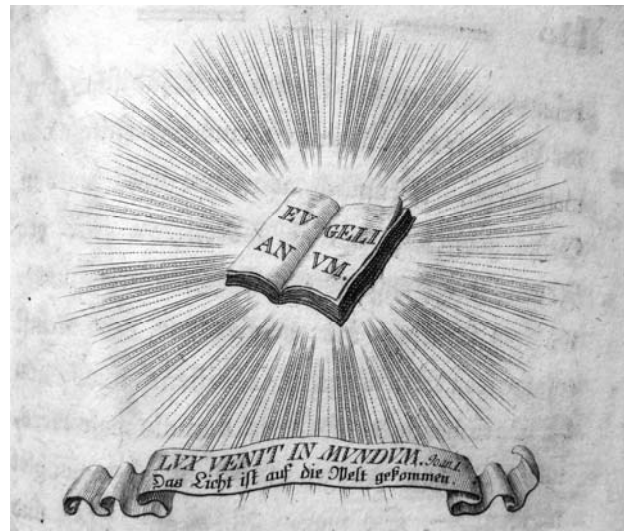 EV GELI
AN VM.
LVX VENIT IN MVNDVM. Joan. 1.
Das Licht ist auf die Welt gekommen.